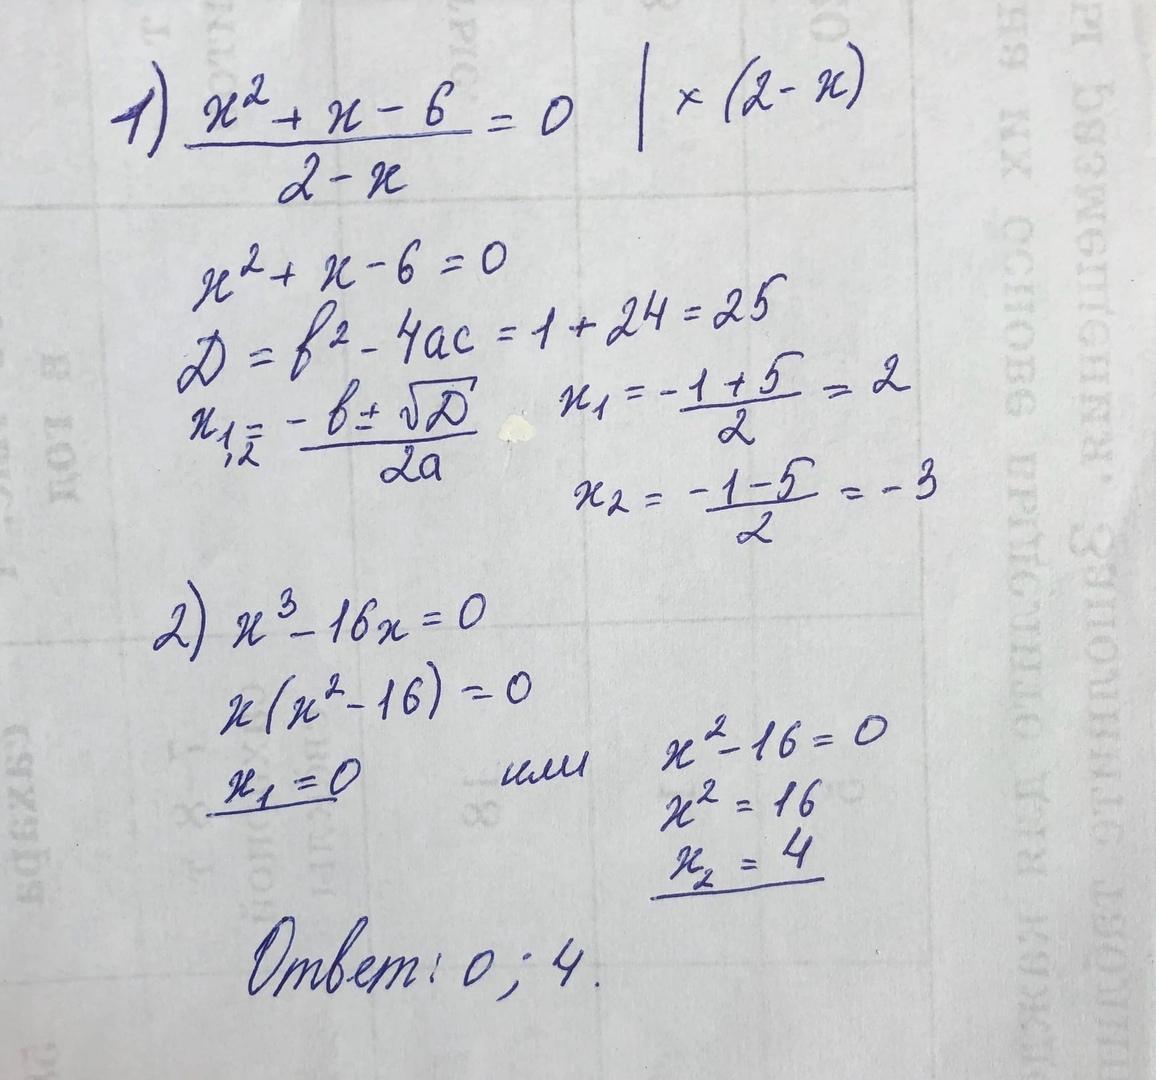 1) (x² + x - 6)/(2 - x) = 0 | × (2 - x)
x² + x - 6 = 0
D = b² - 4ac = 1 + 24 = 25
x₁,₂ = (-b ± √D)/(2a) x₁ = (-1 + 5)/2 = 2
x₂ = (-1 - 5)/2 = -3
2) x³ - 16x = 0
x(x² - 16) = 0
x₁ = 0 или x² - 16 = 0
x² = 16
x₂ = 4
Ответ: 0; 4.